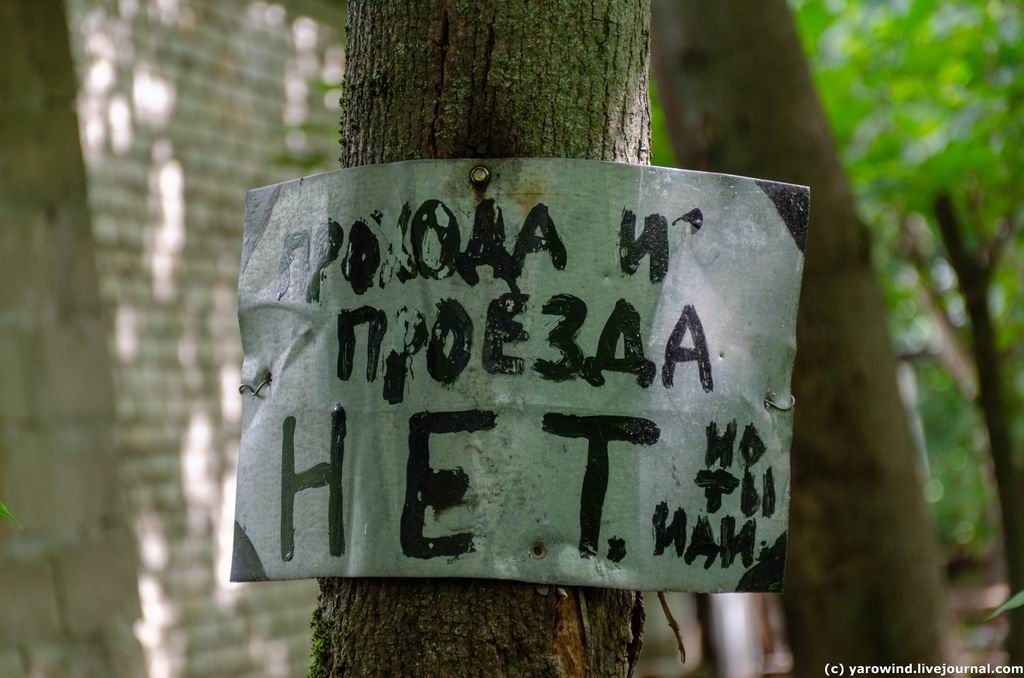 ПРОХОДА И
ПРОЕЗДА
НЕТ.
НО
ТЫ
ИДИ
(c) yarowind.livejournal.com